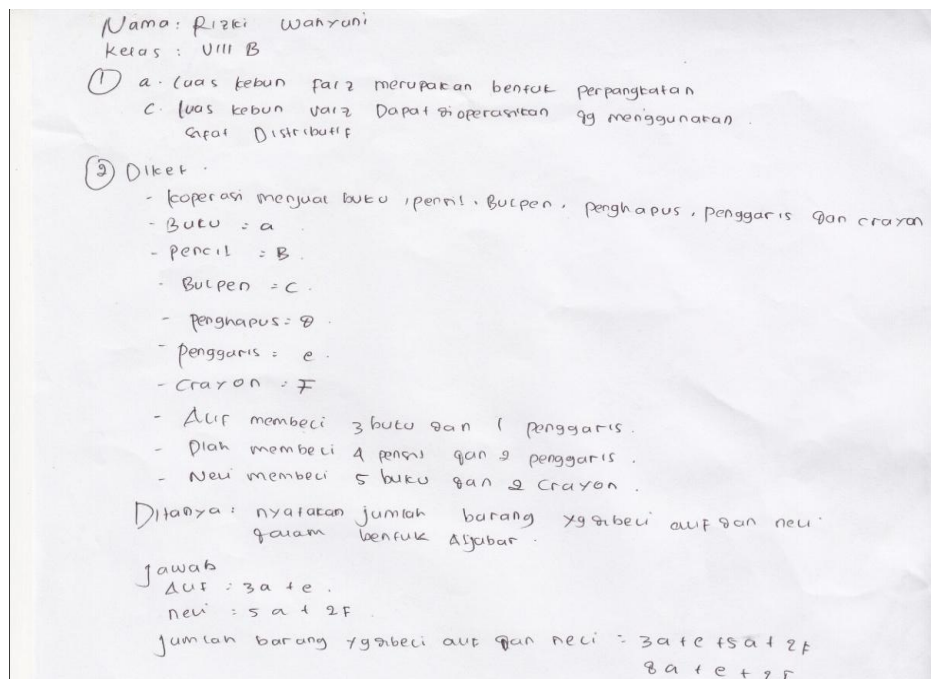 Nama : Rizki Wahyuni
Kelas : VIII B
① a. luas kebun fariz merupakan bentuk perpangkatan
c. luas kebun variz Dapat dioperasikan dg menggunakan
sifat Distributif
② Diket.
- koperasi menjual buku, pensil, Bulpen, penghapus, penggaris dan crayon
- Buku : a
- pencil : B.
- Bulpen = C.
- penghapus = d.
- penggaris = e.
- Crayon : F
- Alif membeli 3 buku dan 1 penggaris.
- Diah membeli 4 pensil dan 2 penggaris.
- Neli membeli 5 buku dan 2 Crayon.
Ditanya : nyatakan jumlah barang yg dibeli alif dan neli
dalam bentuk Aljabar.
Jawab
Alif : 3a + e.
neli : 5a + 2F
Jumlah barang yg dibeli alif dan neli = 3a+e+5a+2F
8a + e + 2F